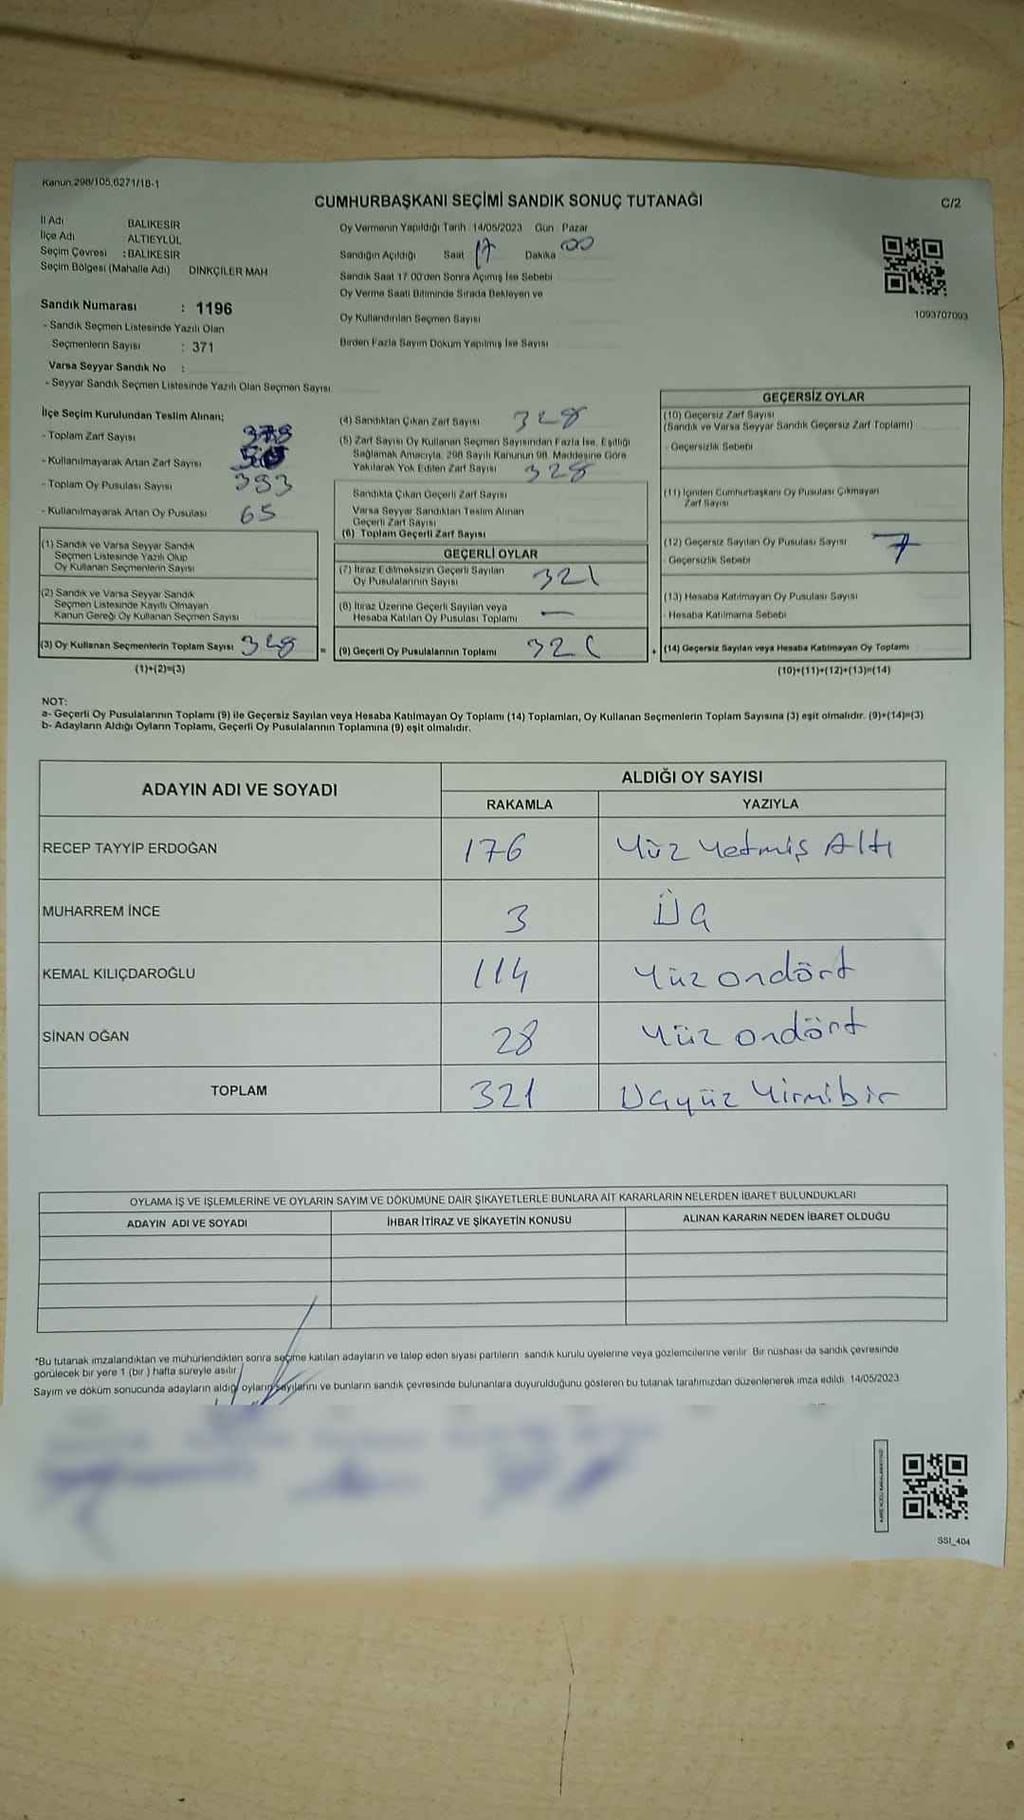 Kanun 298/105,6271/18-1
CUMHURBAŞKANI SEÇİMİ SANDIK SONUÇ TUTANAĞI
C/2
İl Adı BALIKESİR
İlçe Adı ALTIEYLÜL
Seçim Çevresi : BALIKESİR
Seçim Bölgesi (Mahalle Adı) DİNKÇİLER MAH
Oy Vermenin Yapıldığı Tarih 14/05/2023 Gün Pazar
Sandığın Açıldığı Saat 17 Dakika 00
Sandık Saat 17.00'den Sonra Açımış İse Sebebi
Oy Verme Saati Bitiminde Sırada Bekleyen ve
Oy Kullandırılan Seçmen Sayısı
Birden Fazla Sayım Döküm Yapılmış İse Sayısı
1093707093
Sandık Numarası : 1196
- Sandık Seçmen Listesinde Yazılı Olan
Seçmenlerin Sayısı : 371
Varsa Seyyar Sandık No :
- Seyyar Sandık Seçmen Listesinde Yazılı Olan Seçmen Sayısı
İlçe Seçim Kurulundan Teslim Alınan;
- Toplam Zarf Sayısı
- Kullanılmayarak Artan Zarf Sayısı
- Toplam Oy Pusulası Sayısı 393
- Kullanılmayarak Artan Oy Pusulası 65
(1) Sandık ve Varsa Seyyar Sandık
Seçmen Listesinde Yazılı Olup
Oy Kullanan Seçmenlerin Sayısı
(2) Sandık ve Varsa Seyyar Sandık
Seçmen Listesinde Kayıtlı Olmayan
Kanun Gereği Oy Kullanan Seçmen Sayısı
(3) Oy Kullanan Seçmenlerin Toplam Sayısı 328 =
(1)+(2)=(3)
(4) Sandıktan Çıkan Zarf Sayısı 328
(5) Zarf Sayısı Oy Kullanan Seçmen Sayısından Fazla İse, Eşitliği
Sağlamak Amacıyla, 298 Sayılı Kanunun 98. Maddesine Göre
Yakılarak Yok Edilen Zarf Sayısı 328
Sandıkta Çıkan Geçerli Zarf Sayısı
Varsa Seyyar Sandıktan Teslim Alınan
Geçerli Zarf Sayısı
(6) Toplam Geçerli Zarf Sayısı
GEÇERLİ OYLAR
(7) İtiraz Edilmeksizin Geçerli Sayılan
Oy Pusulalarının Sayısı 321
(8) İtiraz Üzerine Geçerli Sayılan veya
Hesaba Katılan Oy Pusulası Toplamı —
(9) Geçerli Oy Pusulalarının Toplamı 321 +
GEÇERSİZ OYLAR
(10) Geçersiz Zarf Sayısı
(Sandık ve Varsa Seyyar Sandık Geçersiz Zarf Toplamı)
- Geçersizlik Sebebi
(11) İçinden Cumhurbaşkanı Oy Pusulası Çıkmayan
Zarf Sayısı
(12) Geçersiz Sayılan Oy Pusulası Sayısı 7
Geçersizlik Sebebi
(13) Hesaba Katılmayan Oy Pusulası Sayısı
- Hesaba Katılmama Sebebi
(14) Geçersiz Sayılan veya Hesaba Katılmayan Oy Toplamı
(10)+(11)+(12)+(13)=(14)
NOT:
a- Geçerli Oy Pusulalarının Toplamı (9) ile Geçersiz Sayılan veya Hesaba Katılmayan Oy Toplamı (14) Toplamları, Oy Kullanan Seçmenlerin Toplam Sayısına (3) eşit olmalıdır. (9)+(14)=(3)
b- Adayların Aldığı Oyların Toplamı, Geçerli Oy Pusulalarının Toplamına (9) eşit olmalıdır.
ADAYIN ADI VE SOYADI
ALDIĞI OY SAYISI
RAKAMLA YAZIYLA
RECEP TAYYİP ERDOĞAN 176 Yüz Yetmiş Altı
MUHARREM İNCE 3 Üç
KEMAL KILIÇDAROĞLU 114 Yüz ondört
SİNAN OĞAN 28 Yüz ondört
TOPLAM 321 Üçyüz Yirmibir
OYLAMA İŞ VE İŞLEMLERİNE VE OYLARIN SAYIM VE DÖKÜMÜNE DAİR ŞİKAYETLERLE BUNLARA AİT KARARLARIN NELERDEN İBARET BULUNDUKLARI
ADAYIN ADI VE SOYADI İHBAR İTİRAZ VE ŞİKAYETİN KONUSU ALINAN KARARIN NEDEN İBARET OLDUĞU
*Bu tutanak imzalandıktan ve mühürlendikten sonra seçime katılan adayların ve talep eden siyasi partilerin sandık kurulu üyelerine veya gözlemcilerine verilir. Bir nüshası da sandık çevresinde
görülecek bir yere 1 (bir) hafta süreyle asılır
Sayım ve döküm sonucunda adayların aldığı oyların sayılarını ve bunların sandık çevresinde bulunanlara duyurulduğunu gösteren bu tutanak tarafımızdan düzenlenerek imza edildi. 14/05/2023
SSI_404